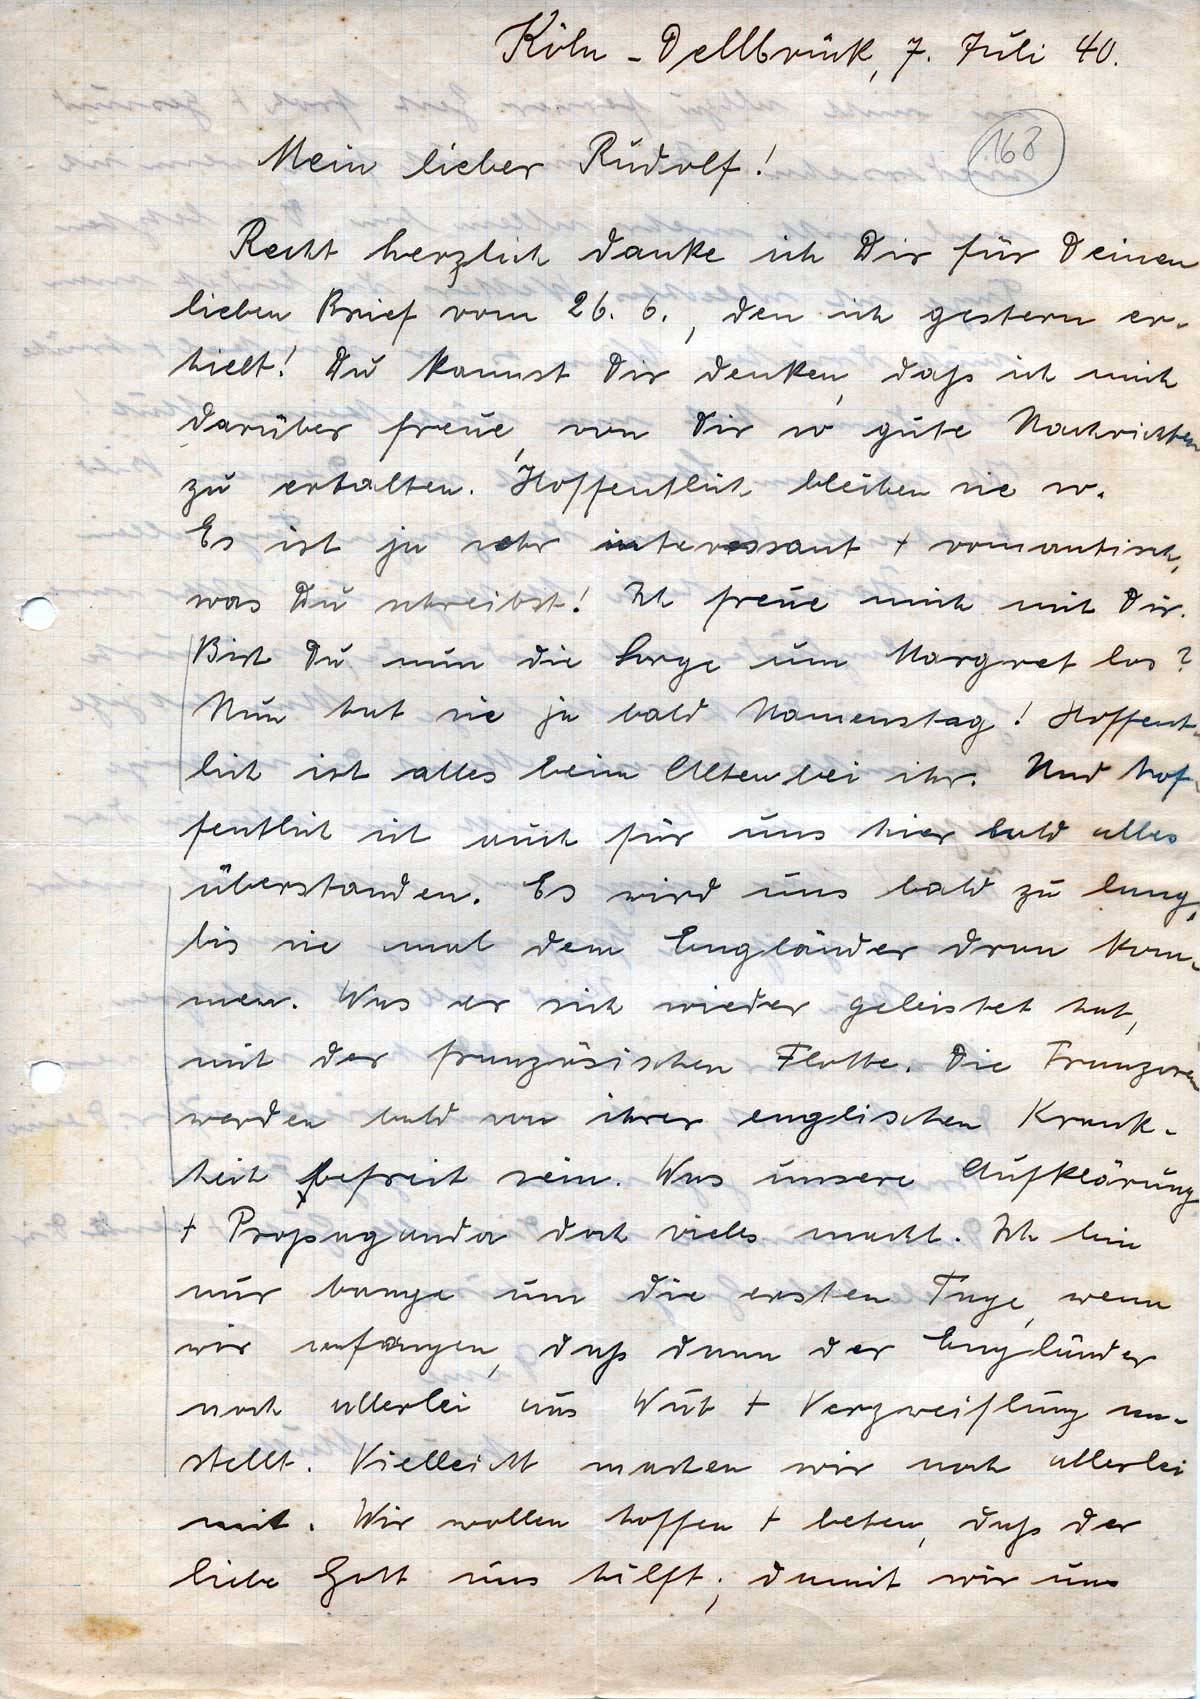 Köln - Dellbrück, 7. Juli 40.
168
Mein lieber Rudolf!
Recht herzlich danke ich Dir für Deinen
lieben Brief vom 26. 6., den ich gestern er-
hielt! Du kannst Dir denken, daß ich mich
darüber freue, von Dir so gute Nachrichten
zu erhalten. Hoffentlich bleiben sie so.
Es ist ja sehr interessant + romantisch,
was Du schreibst! Ich freue mich mit Dir.
Bist Du nun die Sorge um Margret los?
Nun hat sie ja bald Namenstag! Hoffent-
lich ist alles beim Alten bei ihr. Und hof-
fentlich ist auch für uns hier bald alles
überstanden. Es wird uns bald zu lang,
bis sie mal dem Engländer dran kom-
men. Was er sich wieder geleistet hat,
mit der französischen Flotte. Die Franzosen
werden bald von ihrer englischen Krank-
heit befreit sein. Was unsere Aufklärung
+ Propaganda doch vieles macht. Ich bin
nur bange um die ersten Tage, wenn
wir anfangen, daß dann der Engländer
noch allerlei aus Wut + Verzweiflung an-
stellt. Vielleicht machen wir noch allerlei
mit. Wir wollen hoffen + beten, daß der
liebe Gott uns hilft, damit wir uns